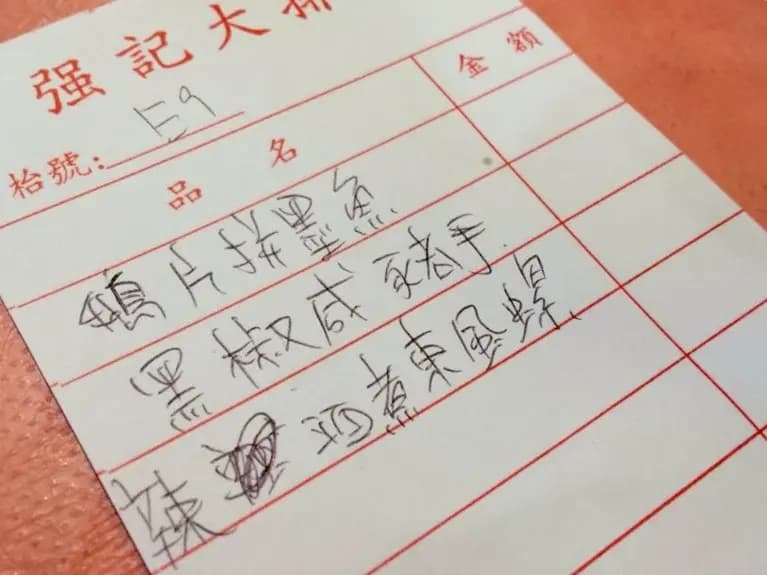 强記大排
枱號: E9
品名 金額
鵝片拼墨魚
黑椒咸豬手
辣酒煮東風螺